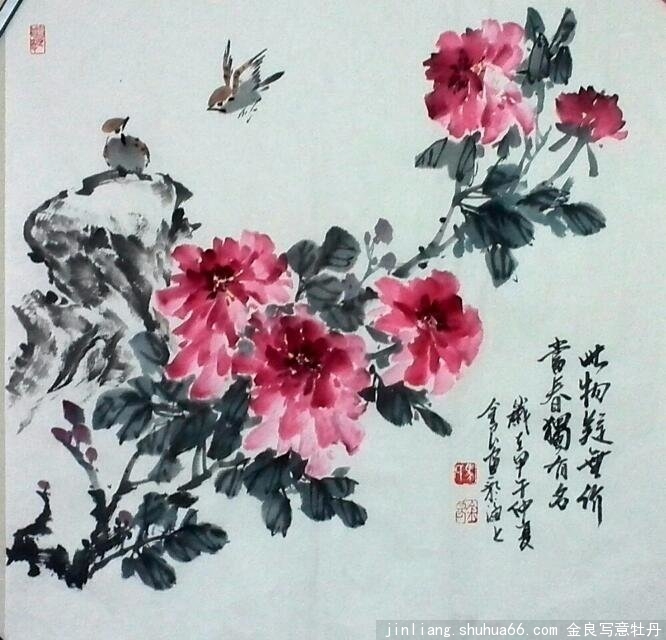 此物疑無价
當春獨有名
歲在甲午仲夏
金良畫於海上
jinliang.shuhua66.com 金良写意牡丹